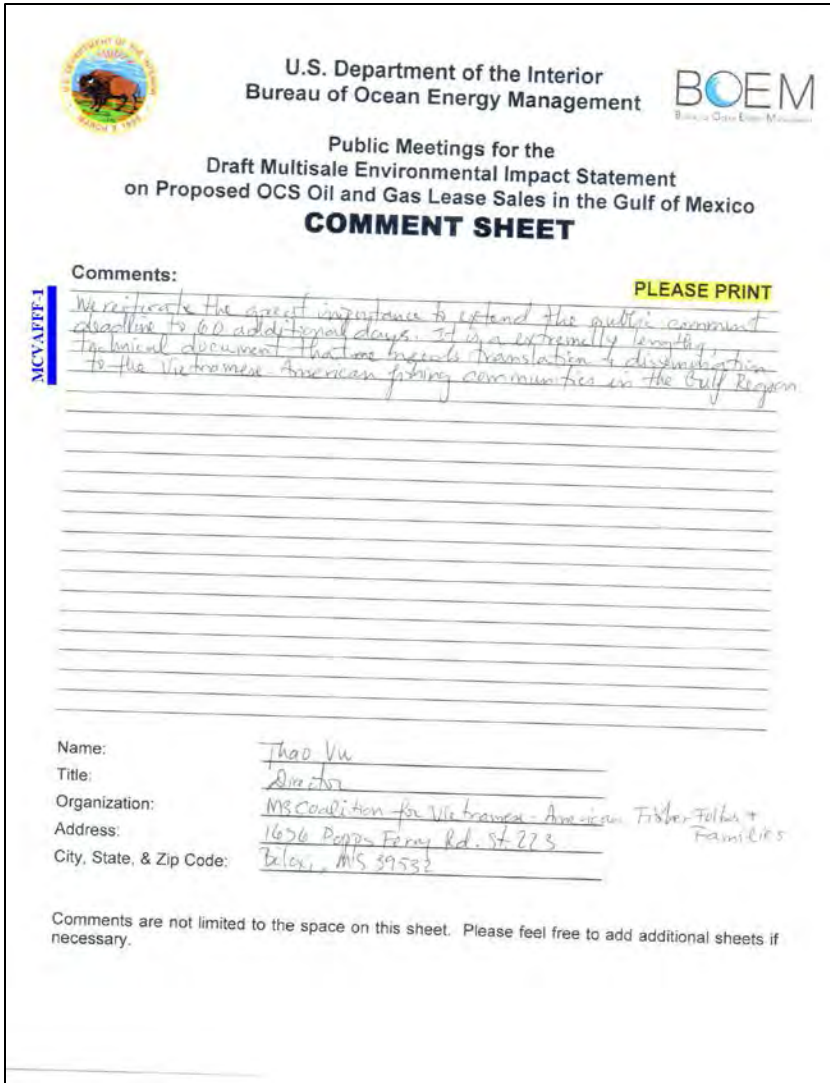 U.S. Department of the Interior
Bureau of Ocean Energy Management
BOEM
Public Meetings for the
Draft Multisale Environmental Impact Statement
on Proposed OCS Oil and Gas Lease Sales in the Gulf of Mexico
COMMENT SHEET
Comments:
PLEASE PRINT
MCVAFFF-1
We reiterate the great importance to extend the public comment
deadline to 60 additional days. It is a extremely lengthy,
technical document that needs translation & dissemination
to the Vietnamese-American fishing communities in the Gulf Region
Name: Thao Vu
Title: Director
Organization: MS Coalition for Vietnamese-American Fisher Folks +
Families
Address: 1636 Popps Ferry Rd. St 223
City, State, & Zip Code: Biloxi, MS 39532
Comments are not limited to the space on this sheet. Please feel free to add additional sheets if
necessary.